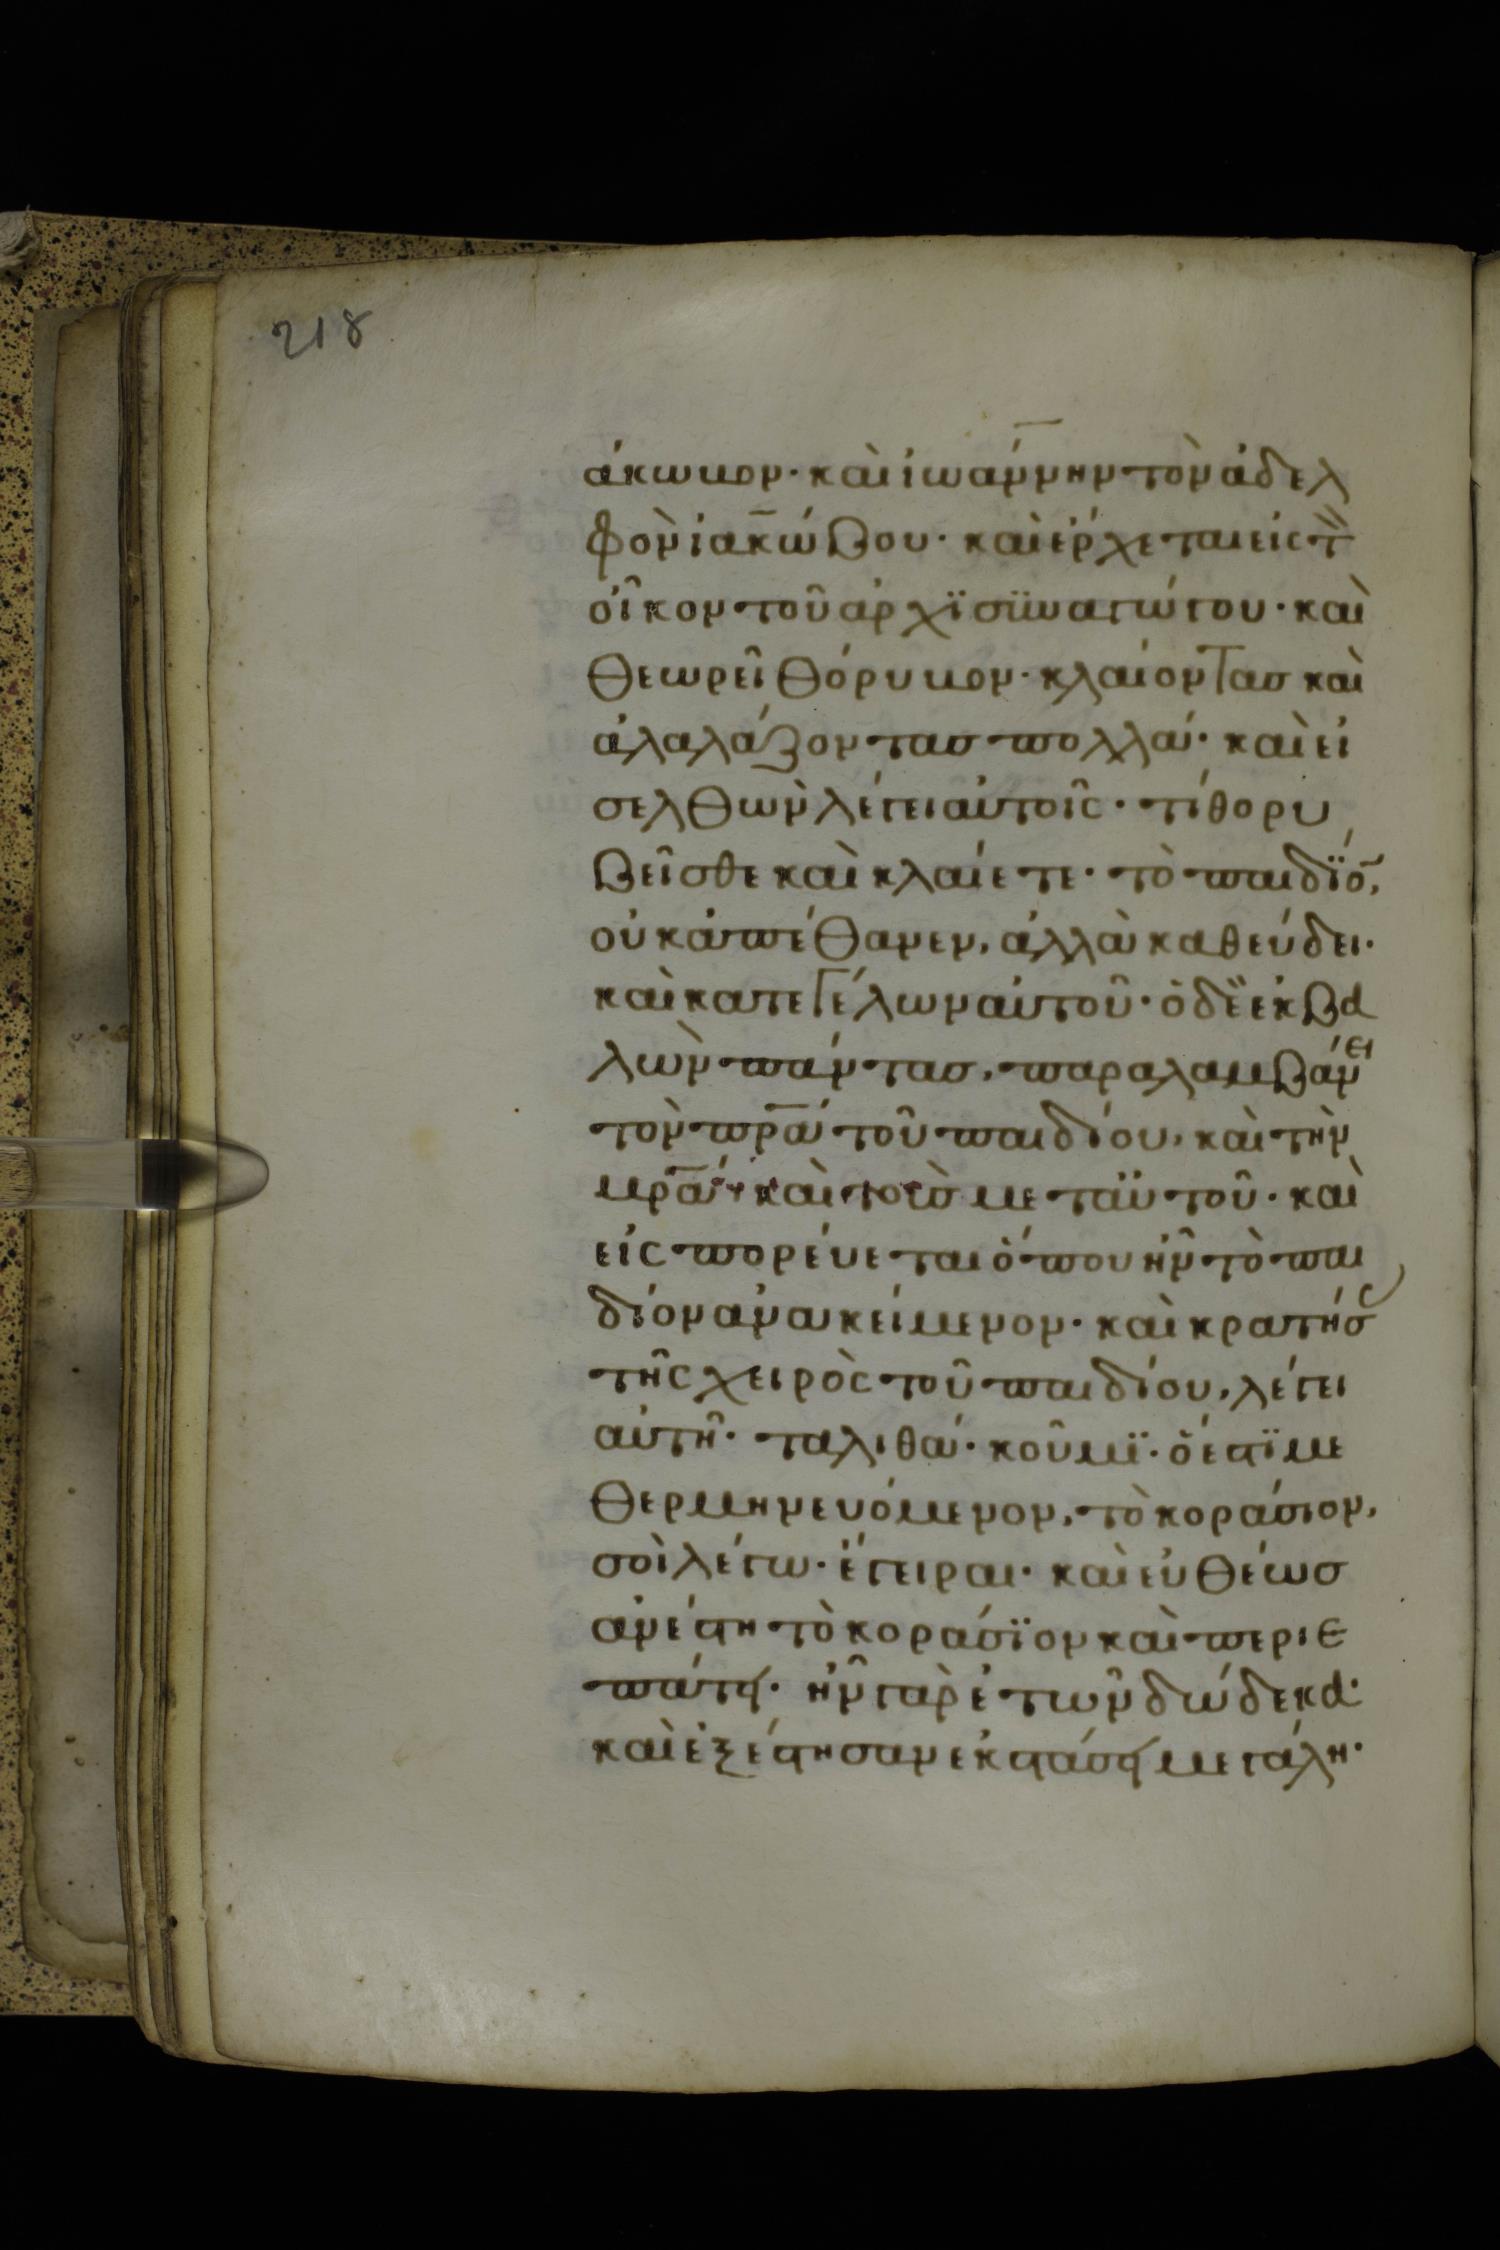 218
άκωβον· καὶ ἰωάννην τὸν ἀδελ
φὸν ἰακώβου· καὶ ἔρχεται εἰς τ̀
οἶκον τοῦ ἀρχϊσϋναγώγου· καὶ
θεωρεῖ θόρυβον· κλαίοντας καὶ
ἀλαλάζοντας πολλά· καὶ εἰ
σελθὼν λέγει αὐτοῖς· τί θορυ
βεῖσθε καὶ κλαίετε· τὸ παιδΐο̃,
οὐκ ἀπέθανεν, ἀλλὰ καθεύδει·
καὶ κατεγέλων αὐτοῦ· ὁ δὲ ἐκβα
λὼν πάντας, παραλαμβάνει
τὸν πρ̅α τοῦ παιδίου, καὶ τὴν
μρ̅α καὶ τοὺς μετ αὐτοῦ· καὶ
εἰσπορεύεται ὅπου ἦν τὸ παι
δίον ἀνακείμενον· καὶ κρατήσ
τῆς χειρὸς τοῦ παιδίου, λέγει
αὐτῆ· ταλιθά· κοῦμϊ· ὅ ἐστϊ με
θερμηνευόμενον, τὸ κοράσιον,
σοὶ λέγω· ἔγειραι· καὶ εὐθέως
ἀνέστη τὸ κοράσϊον καὶ περιε
πάτει· ἦν γὰρ ἐτῶν δώδεκα·
καὶ ἐξέστησαν ἐκστάσει μεγάλη·